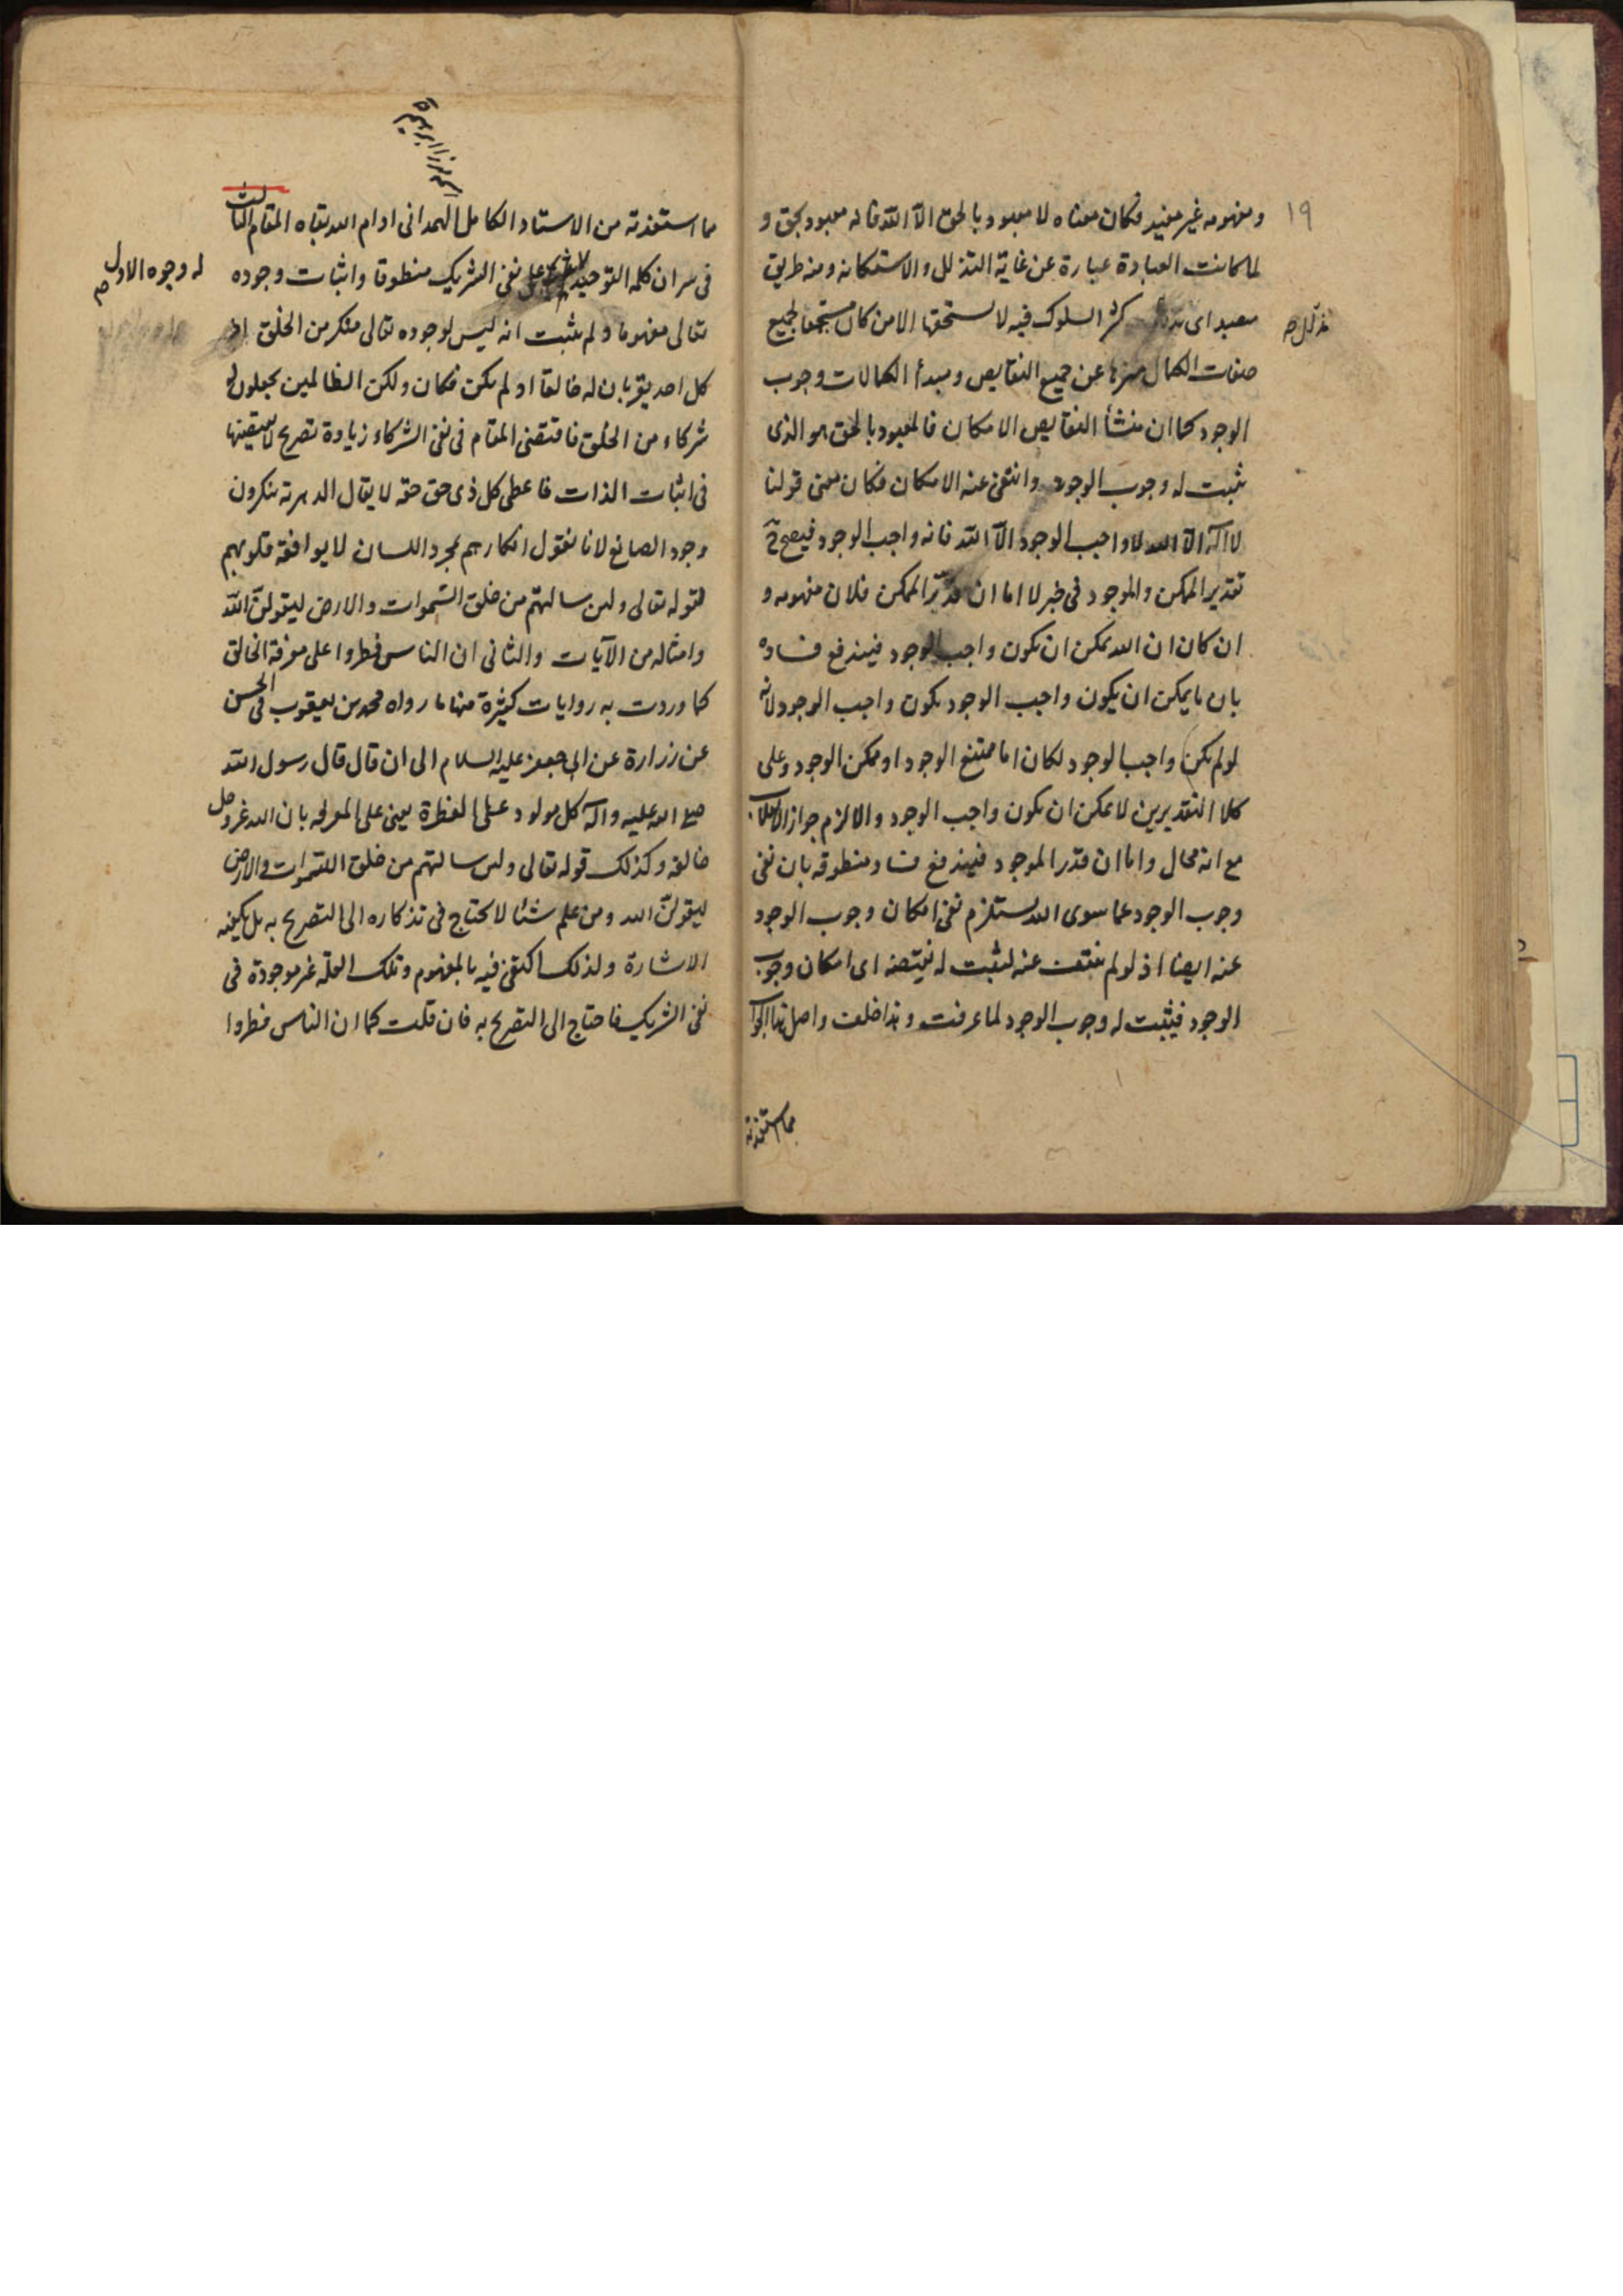 ١٩
ومفهومه غير مفيد فكان معناه لا معبود بالحق الا الله فانه معبود بحق و
لما كانت العبادة عبارة عن غاية التذلل والاستكانة ومنه طريق
معبد اى مذلل كثر السلوك فيه لا يستحقها الا من كان مستجمعا لجميع
مذلل صح
صفات الكمال منزها عن جميع النقايص ومبدأ الكمالات وجوب
الوجود كما ان منشأ النقايص الامكان فالمعبود بالحق هو الذى
يثبت له وجوب الوجود وانتفى عنه الامكان فكان معنى قولنا
لا اله الا الله لا واجب الوجود الا الله فانه واجب الوجود فيصح ح
تقدير الممكن والموجود فى خبر لا اما ان قدّر الممكن فلان مفهومه و
ان كان ان الله يمكن ان يكون واجب الوجود فيندفع فساده
بان ما يمكن ان يكون واجب الوجود يكون واجب الوجود لانه
لو لم يكن واجب الوجود لكان اما ممتنع الوجود او ممكن الوجود وعلى
كلا التقديرين لا يمكن ان يكون واجب الوجود والا لزم جواز الانقلاب
مع انه محال واما ان قدر الموجود فيندفع فساد منطوقه بان نفى
وجوب الوجود عما سوى الله يستلزم نفى امكان وجوب الوجود
عنه ايضا اذ لو لم ينتف عنه لثبت له نقيضه اى امكان وجوب
الوجود فيثبت له وجوب الوجود لما عرفت وهذا خلف واصل هذا الجواب
مما استفدته
مما استفدته من الاستاد الكامل الهمدانى ادام الله بقاه المقام الثالث
فى سر ان كلمة التوحيد على نفى الشريك منطوقا واثبات وجوده
له وجوه الاول صح
تعالى مفهوما ولم يثبت انه ليس لوجوده تعالى منكر من الخلق اذ
كل احد يقر بان له خالقا او لم يكن فكان ولكن الظالمين يجعلون له
شركاء من الخلق فاقتضى المقام فى نفى الشركاء زيادة تصريح لا يقتضيها
فى اثبات الذات فاعطى كل ذى حق حقه لا يقال الدهرية ينكرون
وجود الصانع لانا نقول انكارهم بمجرد اللسان لا يوافقه قلوبهم
لقوله تعالى ولئن سالتهم من خلق السموات والارض ليقولن الله
وامثاله من الآيات والثانى ان الناس فطروا على معرفة الخالق
كما وردت به روايات كثيرة منها ما رواه محمد بن يعقوب فى الحسن
عن زرارة عن ابى جعفر عليه السلام الى ان قال قال رسول الله
صلى الله عليه وآله كل مولود على الفطرة يعنى على المعرفه بان الله عز وجل
خالقه وكذلك قوله تعالى ولئن سالتهم من خلق السموات والارض
ليقولن الله ومن علم شيئا لا يحتاج فى تذكاره الى التصريح به بل يكفيه
الاشارة ولذلك اكتفى فيه بالمفهوم وتلك العلة غير موجودة فى
نفى الشريك فاحتاج الى التصريح به فان قلت كما ان الناس فطروا